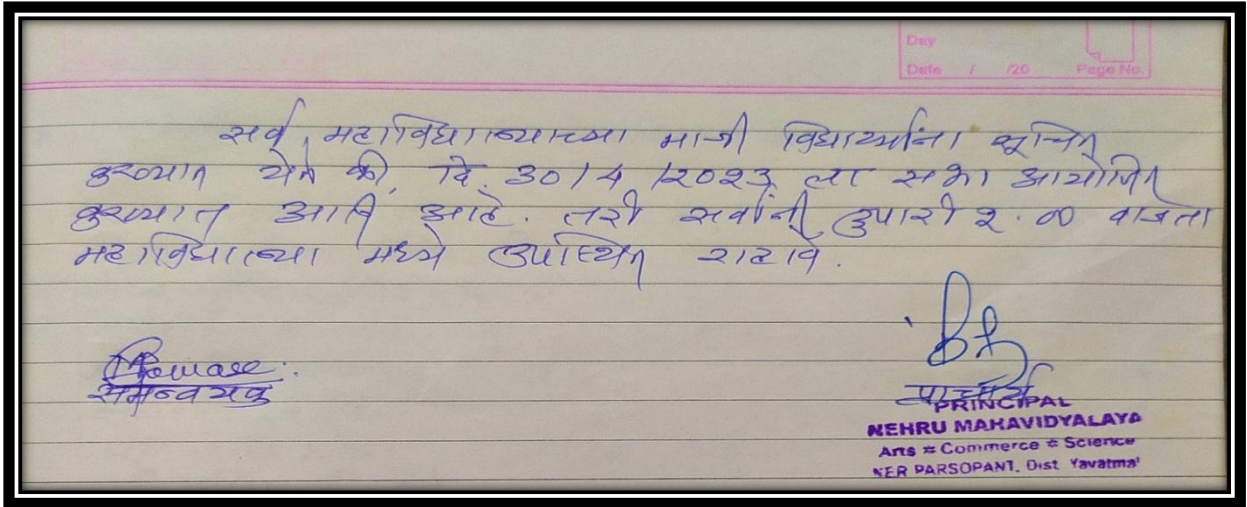 Day
Date / /20 Page No.
सर्व महाविद्यालयाच्या माजी विद्यार्थ्यांना सूचित
करण्यात येते की, दि. 30/4/2023 ला सभा आयोजित
करण्यात आली आहे. तरी सर्वांनी दुपारी २.०० वाजता
महाविद्यालया मध्ये उपस्थित राहावे.
समन्वयक
प्राचार्य
PRINCIPAL
NEHRU MAHAVIDYALAYA
Arts # Commerce # Science
NER PARSOPANT. Dist Yavatmal